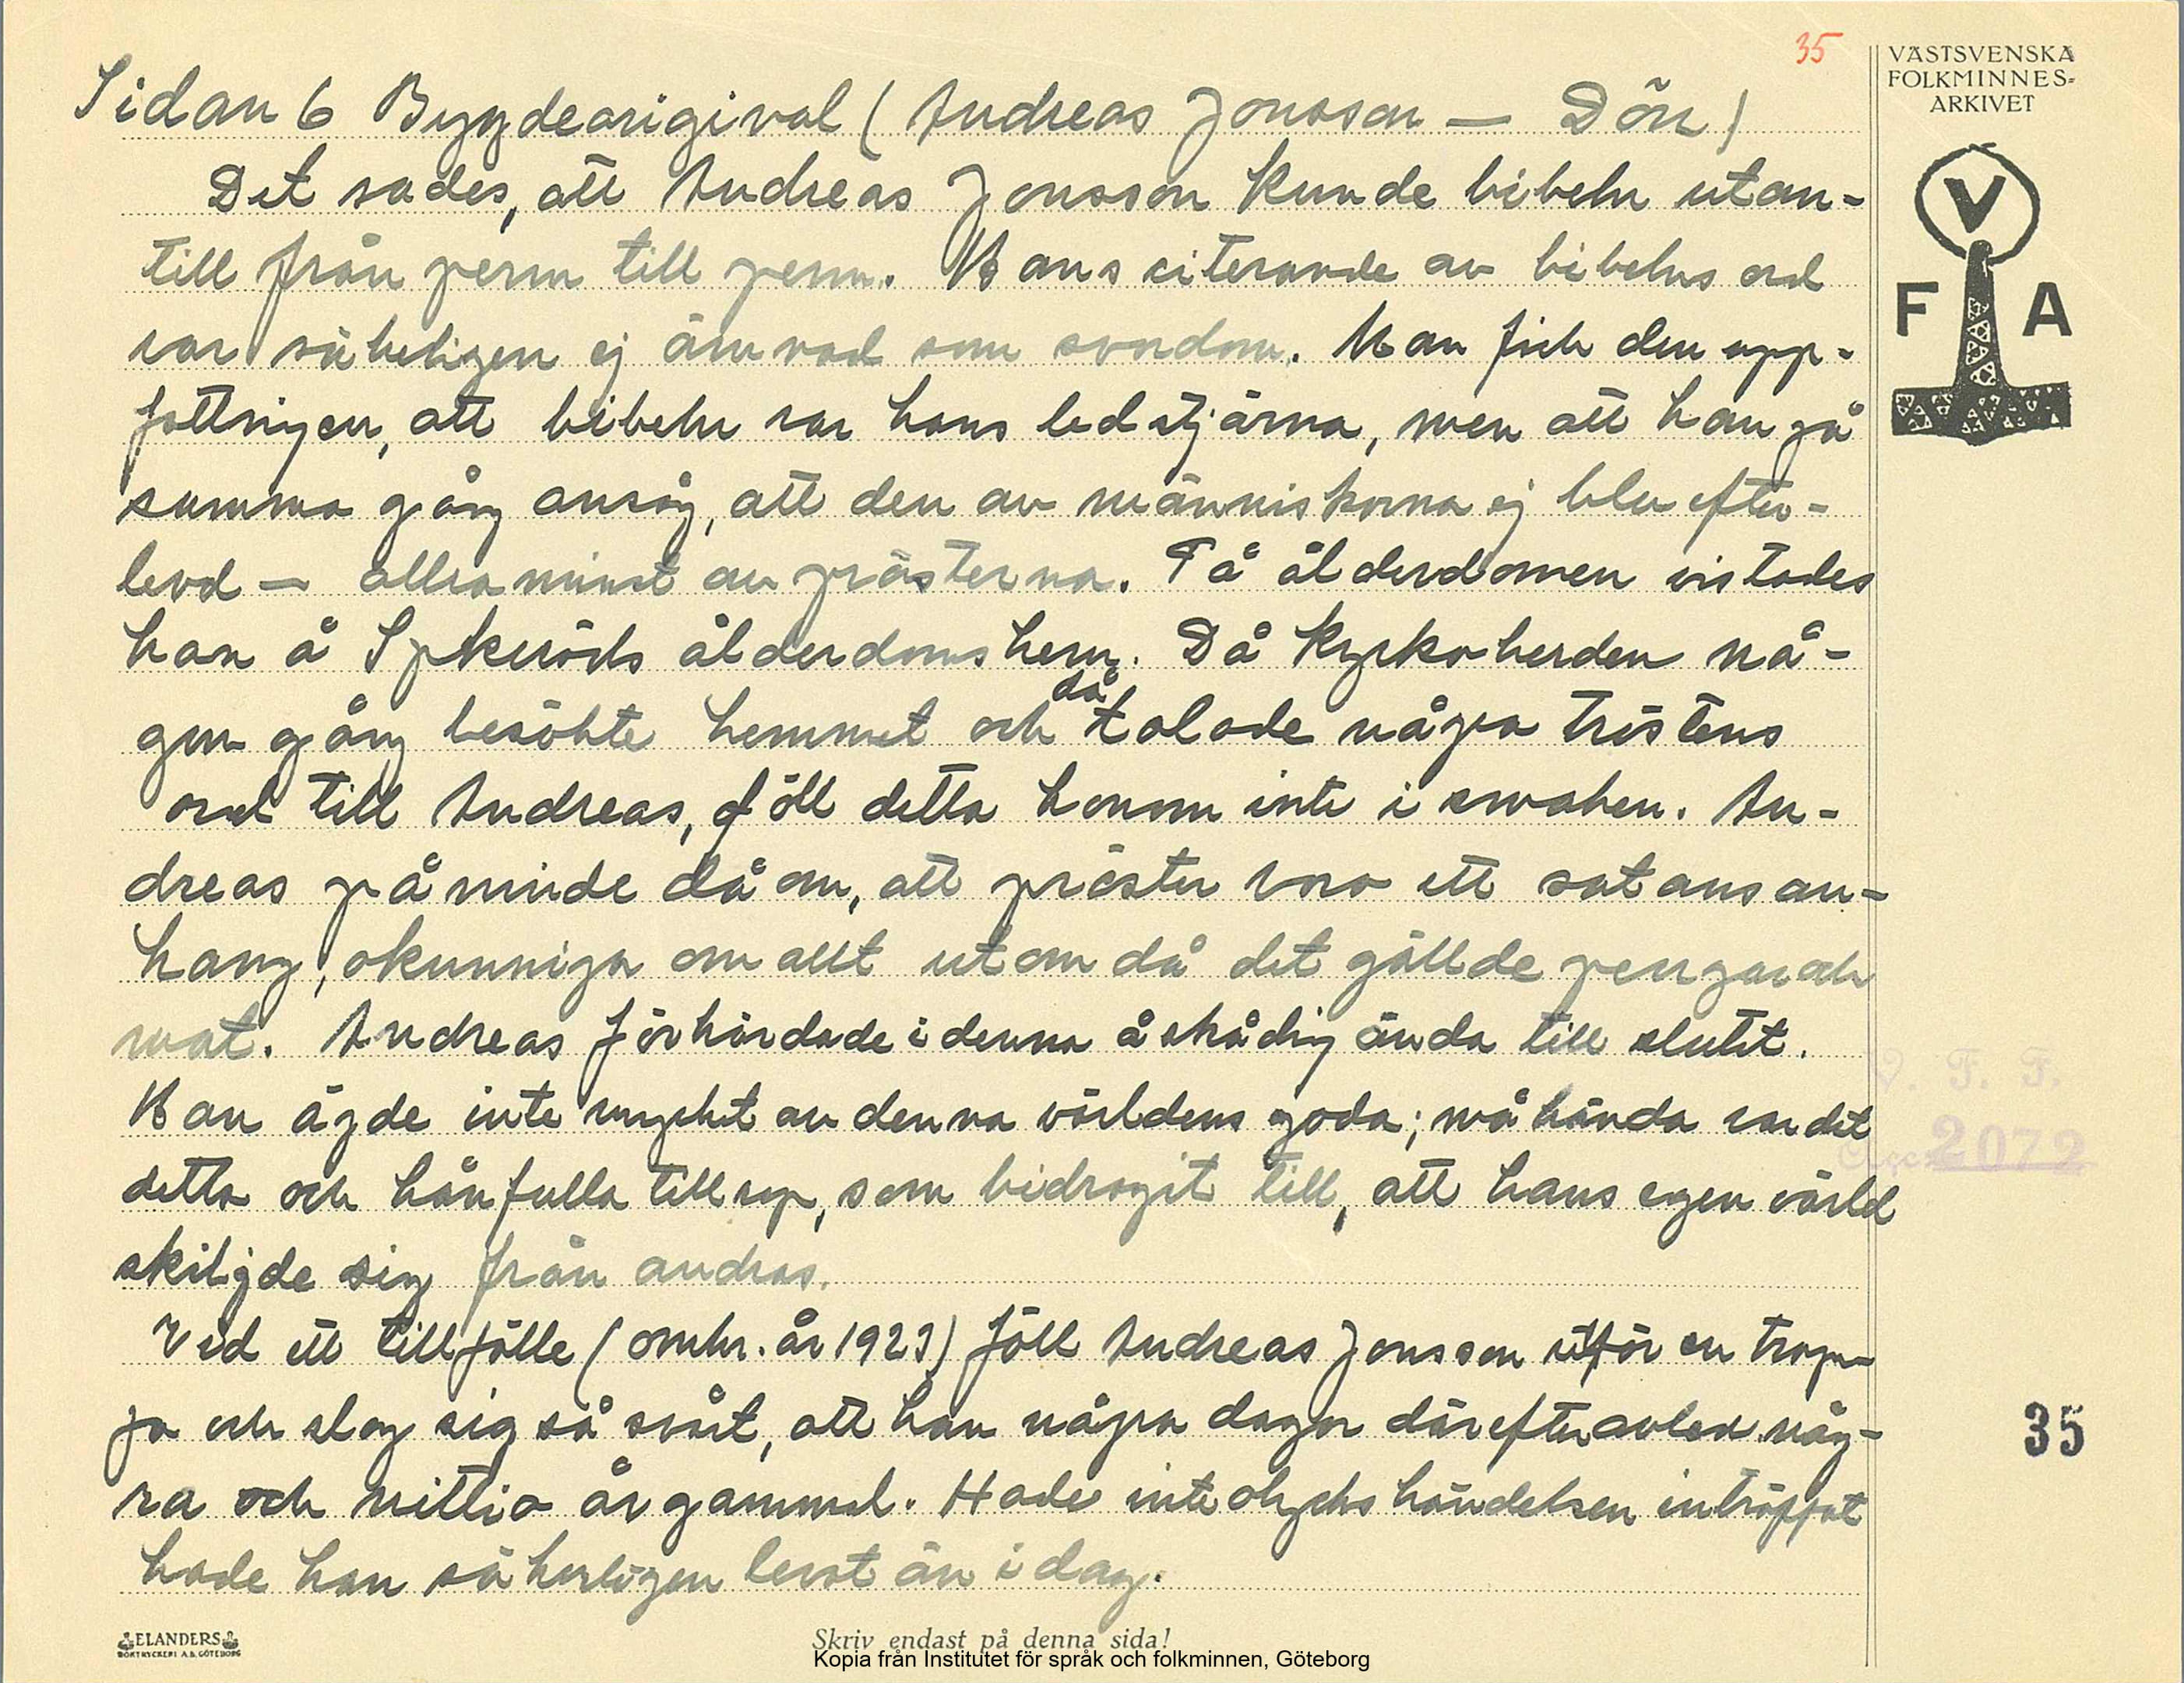 35
VÄSTSVENSKA
FOLKMINNES-
ARKIVET
V
F A
Sidan 6 Bygdeoriginal (Andreas Jonsson — Dön)
Det sades, att Andreas Jonsson kunde bibeln utan-
till från perm till perm. Hans citerande av bibelns ord
var säkerligen ej ämnad som svordom. Man fick den upp-
fattningen, att bibeln var hans ledstjärna, men att han på
samma gång ansåg, att den av människorna ej blev efter-
levd — allra minst av prästerna. På ålderdomen vistades
han å Spekeröds ålderdomshem. Då kyrkoherden nå-
gon gång besökte hemmet och då talade några tröstens
ord till Andreas, föll detta honom inte i smaken. An-
dreas påminde då om, att präster voro ett satans an-
hang, okunniga om allt utom då det gällde pengar och
mat. Andreas förhärdade i denna åskådng ända till slutet.
Han ägde inte mycket av denna världens goda; måhända var det
detta och hånfulla tillrop, som bidragit till, att hans egen värld
skiljde sig från andras.
Vid ett tillfälle (omkr. år 1923) föll Andreas Jonsson utför en trap-
pa och slog sig så svårt, att han några dagar därefter avled någ-
ra och nittio år gammal. Hade inte olyckshändelsen inträffat
hade han säkerligen levat än i dag.
V. F. F.
Acc. 2072
35
ELANDERS
BOKTRYCKERI A.B. GÖTEBORG
Skriv endast på denna sida!
Kopia från Institutet för språk och folkminnen, Göteborg